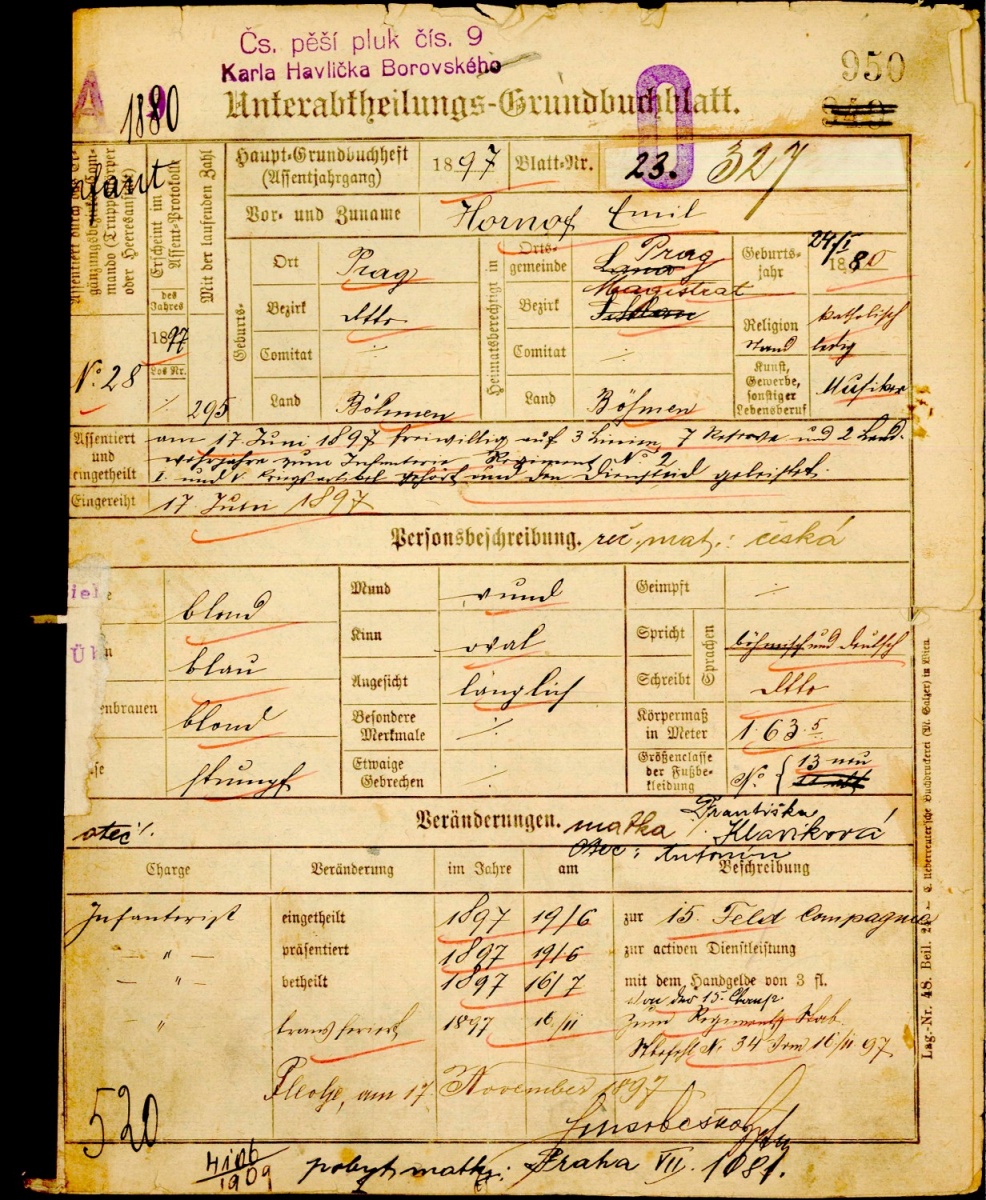 Čs. pěší pluk čís. 9
Karla Havlíčka Borovského
950
1880
Unterabtheilungs-Grundbuchblatt.
Haupt-Grundbuchheft
(Assentjahrgang)
1897
Blatt-Nr.
23. 327
Vor- und Zuname
Hornof Emil
Erscheint im
Assent-Protokolle
des
Jahres
1897
Los Nr.
Mit der laufenden Zahl
No. 28
295
Geburts-
Ort
Prag
Bezirk
dtto
Comitat
Land
Böhmen
Heimatsberechtigt in
Orts-
gemeinde
Prag
Bezirk
Magistrat
Comitat
Land
Böhmen
Geburts-
jahr
24/I
1880
Religion
katholisch
Stand
ledig
Kunst,
Gewerbe,
sonstiger
Lebensberuf
Musiker
Assentiert
und
eingetheilt
am 17 Juni 1897 freiwillig auf 3 Linien, 7 Reserve und 2 Land-
wehrjahre zum Infanterie Regiment No. 2
und den Diensteid geleistet.
Eingereiht
17 Juni 1897
Personsbeschreibung. řeč. mat.: česká
blond
blau
enbrauen
blond
stumpf
Mund
rund
Kinn
oval
Angesicht
länglich
Besondere
Merkmale
Etwaige
Gebrechen
Geimpft
Spricht
Schreibt
Sprachen
böhmisch und deutsch
dtto
Körpermaß
in Meter
1.63.5
Größenclasse
der Fußbe-
kleidung
No. 13 neu
Veränderungen.
otec
matka Františka
Klavíková
Otec: Antonín
Charge
Veränderung
im Jahre
am
Beschreibung
Infanterist
eingetheilt
1897
19/6
zur 15. Feld Compagnie
— " —
präsentiert
1897
19/6
zur activen Dienstleistung
— " —
betheilt
1897
16/7
mit dem Handgelde von 3 fl.
von der 15. Comp.
"
transferiert
1897
16/11
zum Regiments Stab
No. 34 vom 16/11 97
am 17 November 1897
520
1909
pobyt matky: Praha VII. 1081.
Lag.-Nr. 48. Beil.